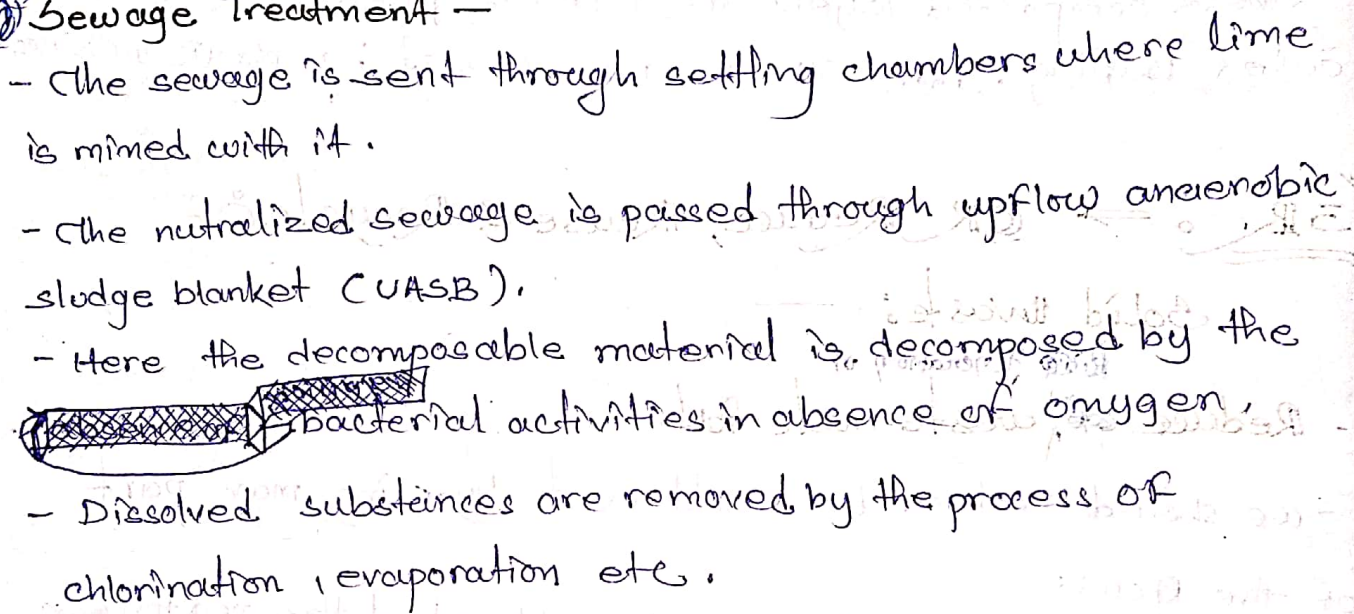 Sewage Treatment —
- The sewage is sent through settling chambers where lime
is mixed with it.
- The nutralized sewage is passed through upflow anaerobic
sludge blanket (UASB).
- Here the decomposable material is decomposed by the
bacterial activities in absence of oxygen.
- Dissolved substances are removed by the process of
chlorination, evaporation etc.